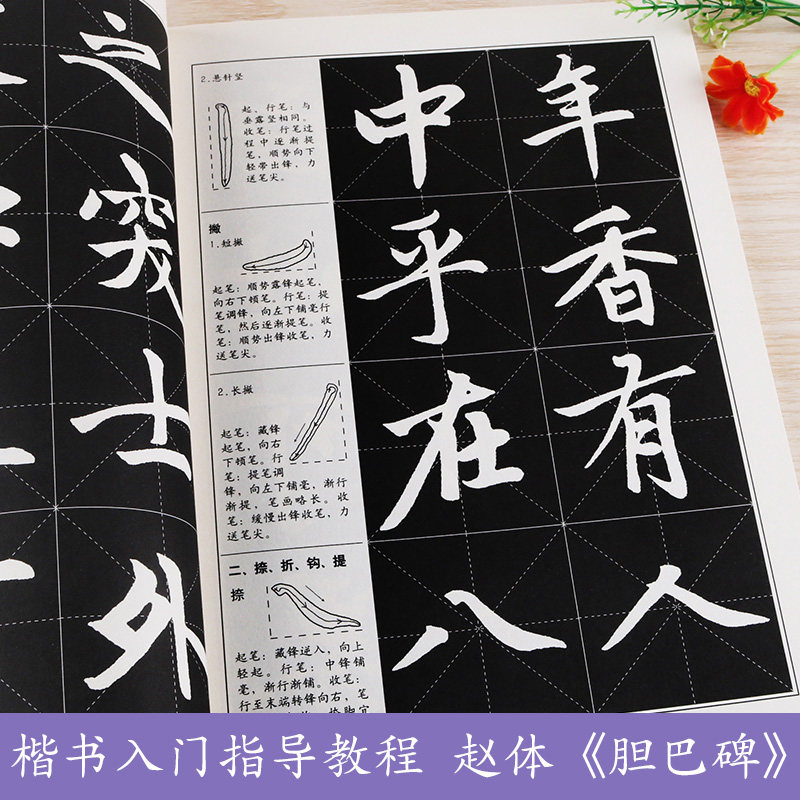 之
士
外
2.悬针竖
起、行笔：与
垂露竖相同。
收笔：行笔过
程中逐渐提
笔，顺势向下
轻带出锋，力
送笔尖。
撇
1.短撇
起笔：顺势露锋起笔，
向右下顿笔。行笔：提
笔调锋，向左下铺毫行
笔，然后逐渐提笔。收
笔：顺势出锋收笔，力
送笔尖。
2.长撇
起笔：藏锋
起笔，向右
下顿笔。行
笔：提笔调
锋，向左下铺毫，渐行
渐提，笔画略长。收
笔：缓慢出锋收笔，力
送笔尖。
二、捺、折、钩、提
捺
起笔：藏锋逆入，向上
轻起。行笔：中锋铺
毫，渐行渐铺。收笔：
行至末端转锋向右，笔
中 年
乎 香
在 有
八 人
楷书入门指导教程 赵体《胆巴碑》